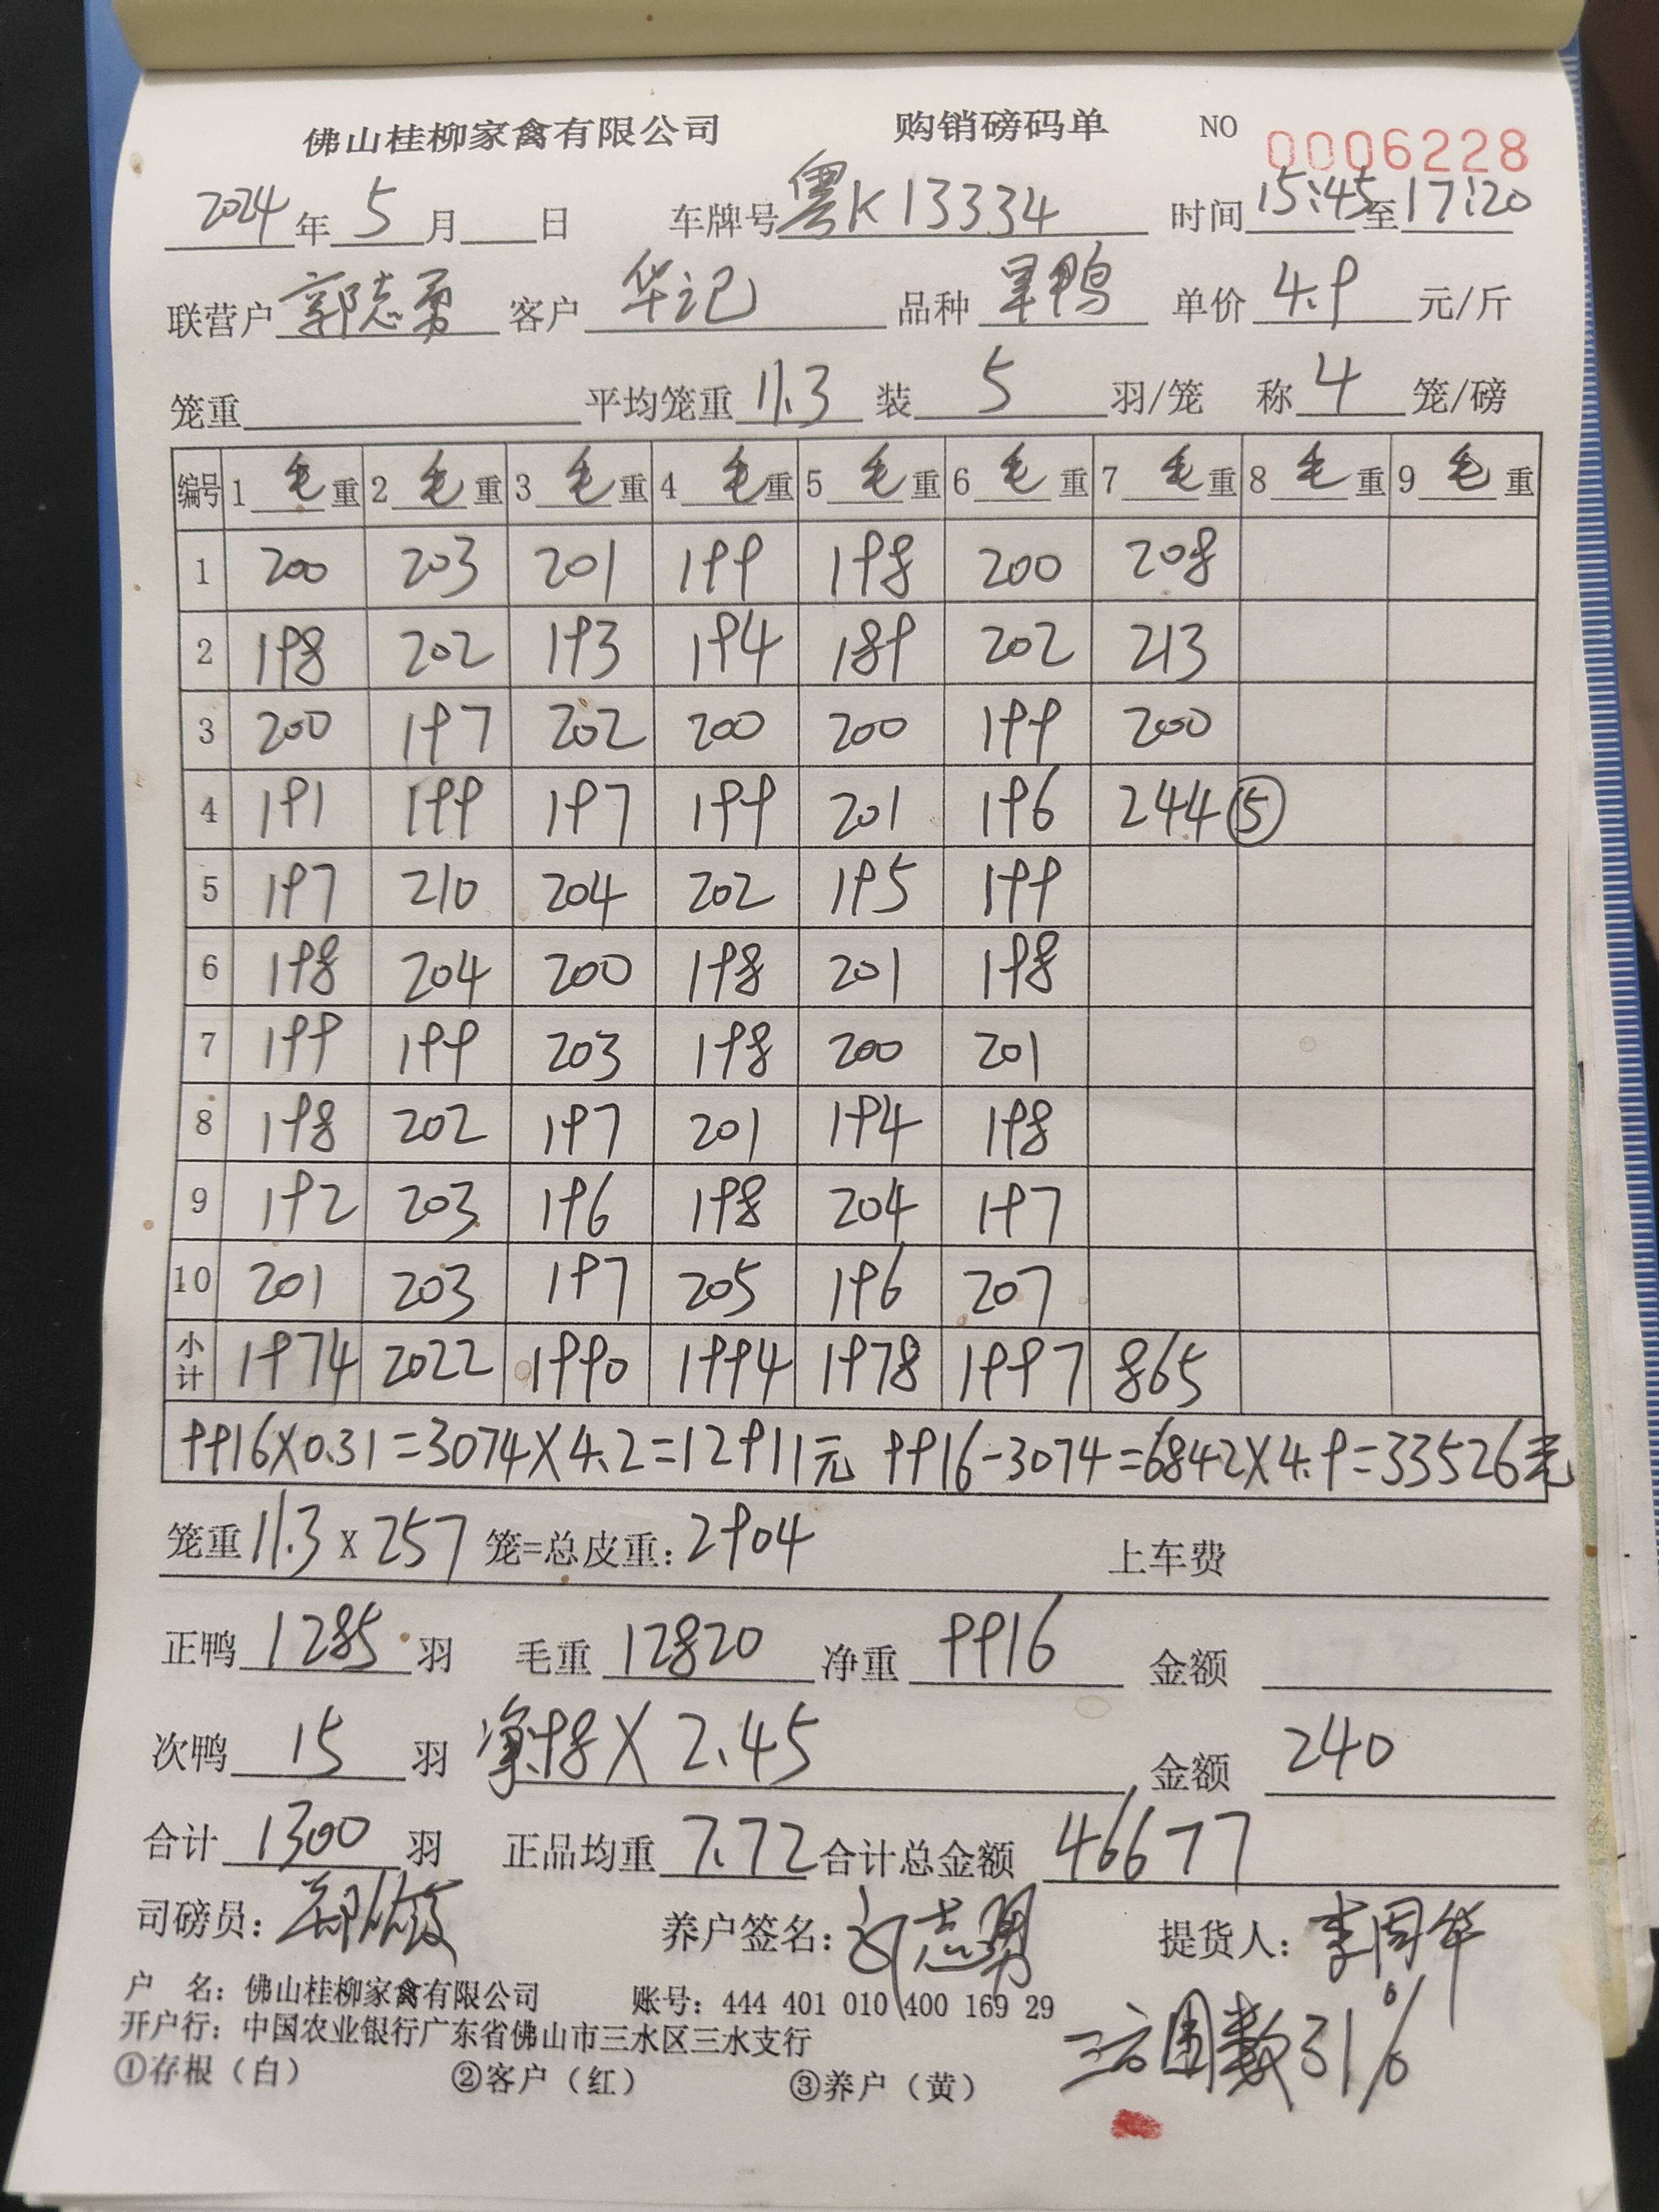 佛山桂柳家禽有限公司 购销磅码单 NO 0006228
2024年5月 日 车牌号粤K13334 时间15:45至17:20
联营户 郭志勇 客户 华记 品种 旱鸭 单价 4.9 元/斤
笼重 平均笼重 11.3 装 5 羽/笼 称 4 笼/磅
编号 1毛重 2毛重 3毛重 4毛重 5毛重 6毛重 7毛重 8毛重 9毛重
1 200 203 201 199 198 200 208
2 198 202 193 194 189 202 213
3 200 197 202 200 200 199 200
4 191 199 197 199 201 196 244⑤
5 197 210 204 202 195 199
6 198 204 200 198 201 198
7 199 199 203 198 200 201
8 198 202 197 201 194 198
9 192 203 196 198 204 197
10 201 203 197 205 196 207
小计 1974 2022 1990 1994 1978 1997 865
9916X0.31=3074X4.2=12911元 9916-3074=6842X4.9=33526元
笼重11.3x257 笼=总皮重:2904 上车费
正鸭 1285 羽 毛重 12820 净重 9916 金额
次鸭 15 羽 净:98X2.45 金额 240
合计 1300 羽 正品均重 7.72 合计总金额 46677
司磅员: 养户签名: 志勇 提货人: 李国华
户 名:佛山桂柳家禽有限公司 账号:444 401 010 400 169 29
开户行:中国农业银行广东省佛山市三水区三水支行
围数31%
①存根(白) ②客户(红) ③养户(黄)